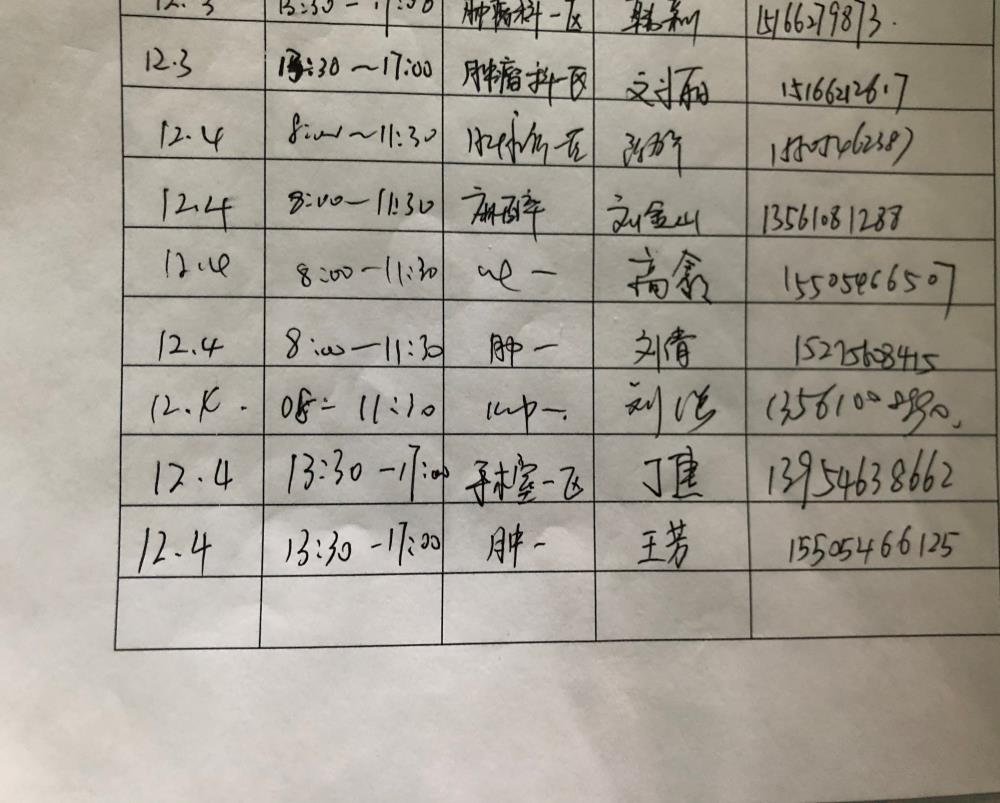 12.3 13:30-17:00 肿瘤科一区 15166279873.
12.3 13:30~17:00 肿瘤科一区 刘丽
12.4 8:00~11:30 15505462387
12.4 8:00-11:30 麻醉 刘金山 13561081288
12.4 8:00-11:30 一 高鑫 15505466507
12.4 8:00-11:30 肿一 刘倩 15275608415
12.4. 08- 11:30 肿一. 刘
12.4 13:30-17:00 手术室一区 丁焦 13954638662
12.4 13:30-17:00 肿一 王芳 15505466125